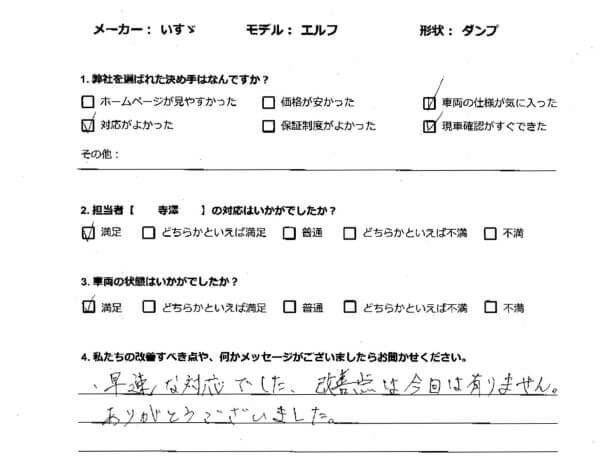 メーカー： いすゞ モデル： エルフ 形状： ダンプ
1. 弊社を選ばれた決め手はなんですか？
□ ホームページが見やすかった □ 価格が安かった ☑ 車両の仕様が気に入った
☑ 対応がよかった □ 保証制度がよかった ☑ 現車確認がすぐできた
その他：
2. 担当者【 寺澤 】の対応はいかがでしたか？
☑ 満足 □ どちらかといえば満足 □ 普通 □ どちらかといえば不満 □ 不満
3. 車両の状態はいかがでしたか？
☑ 満足 □ どちらかといえば満足 □ 普通 □ どちらかといえば不満 □ 不満
4. 私たちの改善すべき点や、何かメッセージがございましたらお聞かせください。
、早速な対応でした、改善点は今回は有りません。
ありがとうございました。